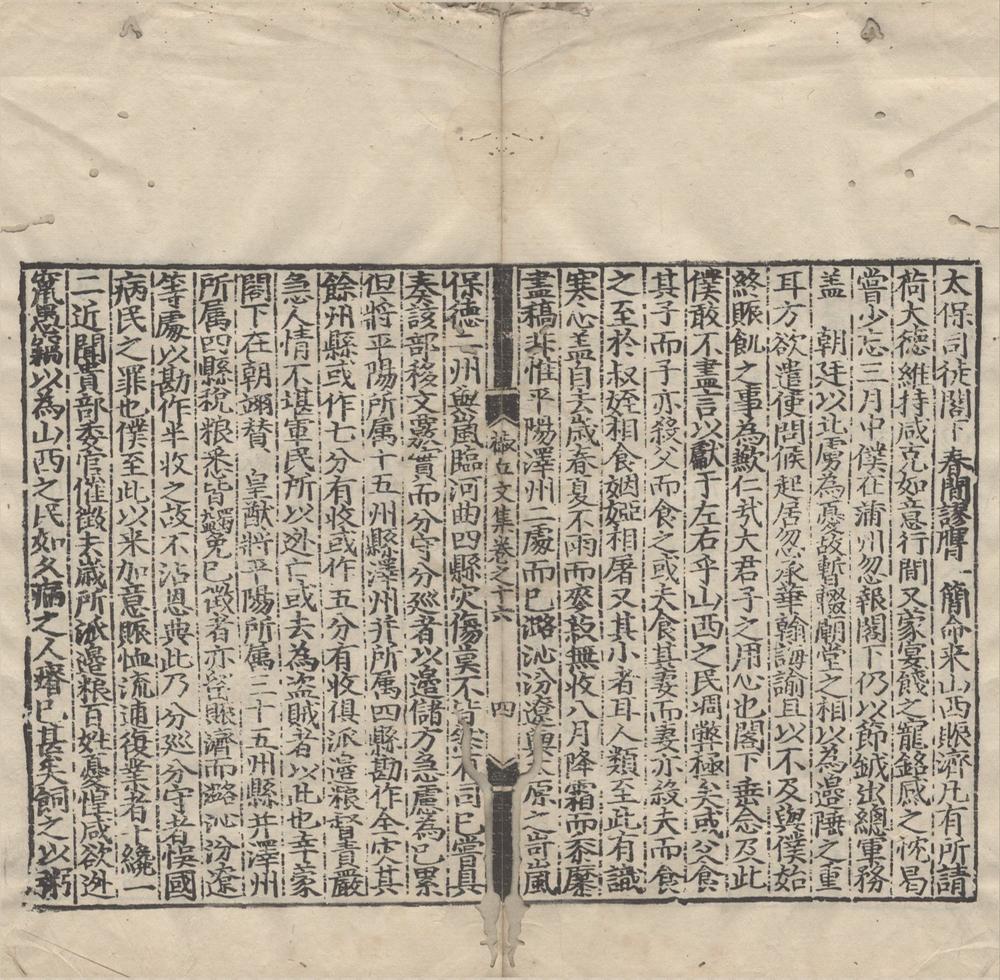 太保司徒閣下　春間謬膺　簡命来山西賑濟凡有所請
荷大德維持咸克如意行間又蒙宴餞之寵銘感之忱曷
嘗少忘三月中僕在蒲州忽報閣下仍以節鉞出總軍務
盖　朝廷以北虜為憂故暫輟廟堂之相以為邊陲之重
耳方欲遣使問候起居忽承華翰誨諭且以不及與僕始
終賑飢之事為歉仁㦲大君子之用心也閣下垂念及此
僕敢不盡言以獻于左右乎山西之民凋弊極矣或父食
其子而子亦殺父而食之或夫食其妻而妻亦殺夫而食
之至於叔姪相食姻婭相屠又其小者耳人類至此有識
寒心盖自去歲春夏不雨而麥菽無收八月降霜而黍糜
盡稿非惟平陽澤州二處而已潞沁汾遼與原之岢嵐
襪丘文集卷之十六
四
保德二州與嵐臨河曲四縣灾傷莫不皆然不司已嘗具
奏該部移文覆實而分守分廵者以邊儲方急慮為己累
但將平陽所属十五州縣澤州并所属四縣勘作全灾其
餘州縣或作七分有收或作五分有收俱派邊粮督責嚴
急人情不堪軍民所以迯亡或去為盗賊者以此也幸家
閣下在朝翊賛　皇猷將平陽所属三十五州縣并澤州
所属四縣稅粮悉皆蠲免已徵者亦從賑濟而潞沁汾遼
等處以勘作半收之故不沾恩典此乃分廵分守者悮國
病民之罪也僕至此以来加意賑恤流逋復業者十纔一
二近聞貴部委官催徵去歲所派邊粮百姓憂惶咸欲迯
竄愚竊以為山西之民如久病之人瘠已甚矣飼之以粥